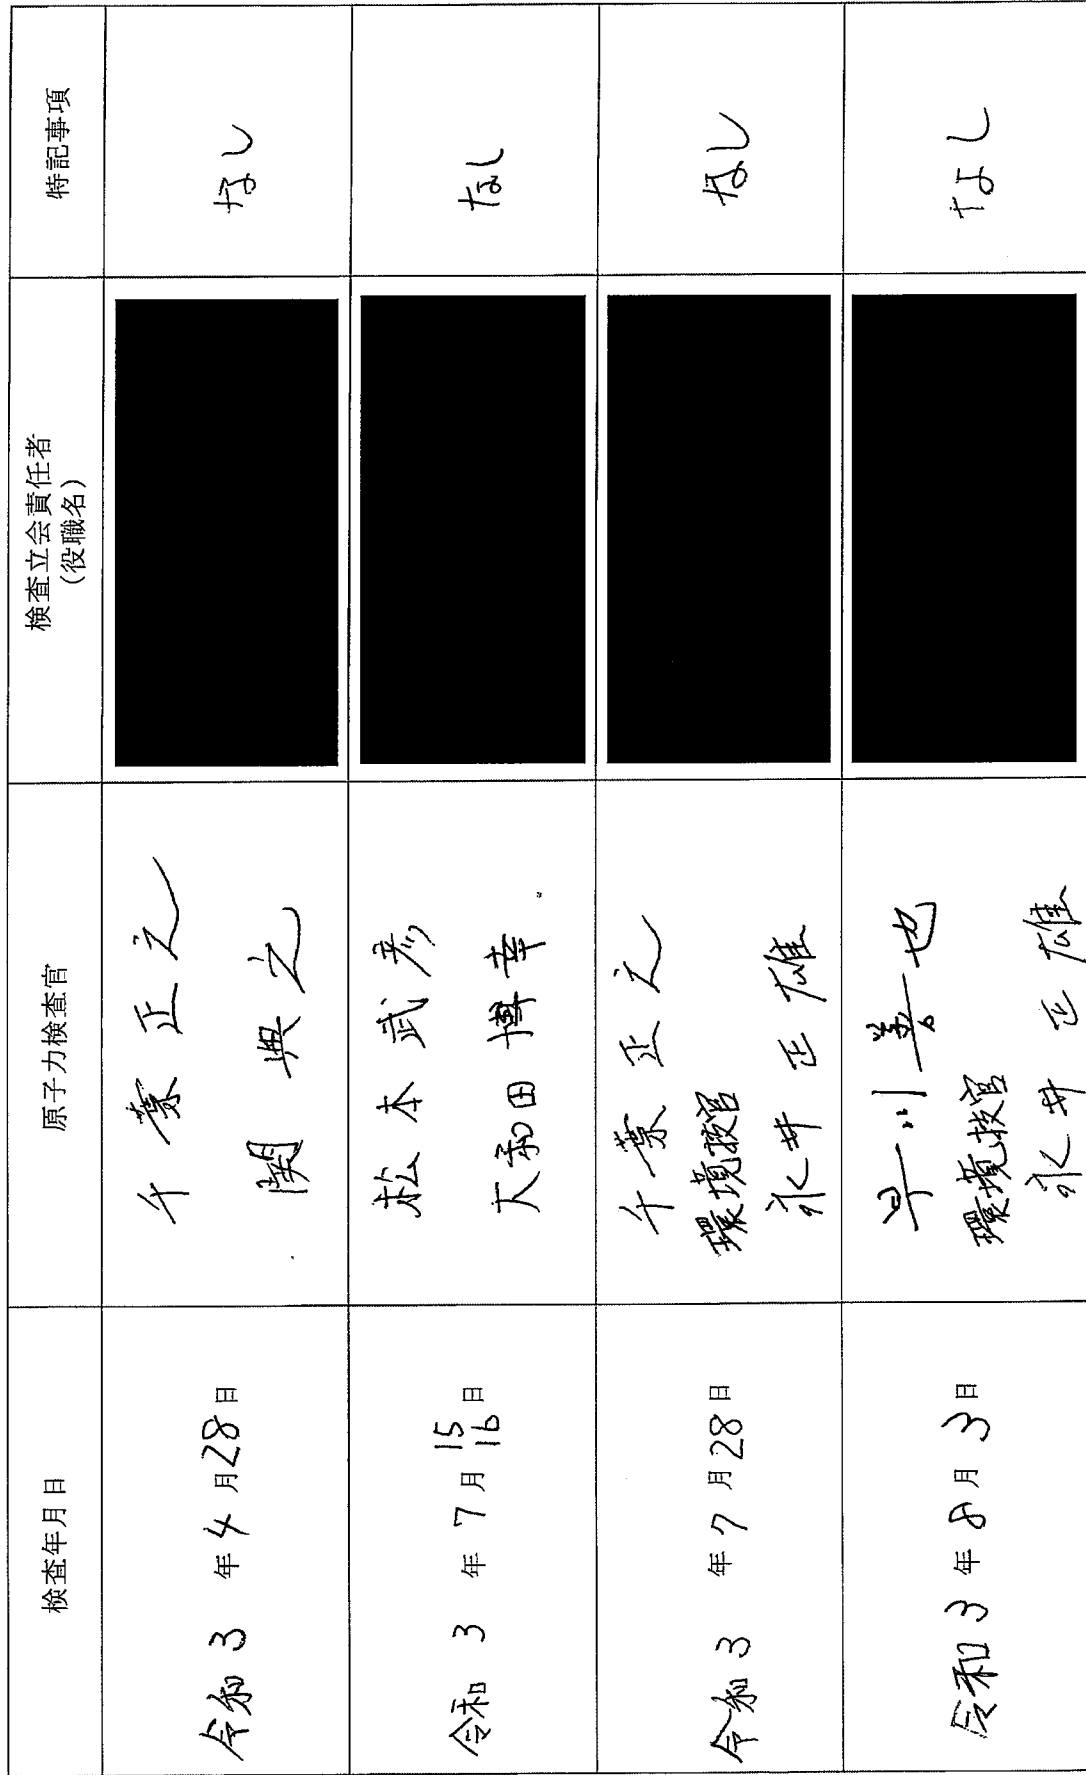 検査年月日
原子力検査官
検査立会責任者
(役職名)
特記事項
令和 3 年 4 月 28 日
千葉 正之
関 典之
なし
令和 3 年 7 月 15 16 日
松本 武彦
大和田 博幸
なし
令和 3 年 7 月 28 日
千葉 正之
環境技官
永井 正雄
なし
令和 3 年 8 月 3 日
早川 善也
環境技官
永井 正雄
なし